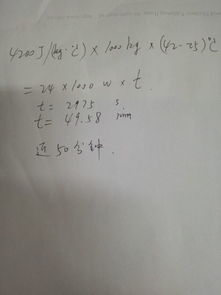 4200 J/(kg·℃) × 1000 kg × (42-25)℃
= 24 × 1000 w × t
t = 2975 s.
t = 49.58 min
近 50分钟.